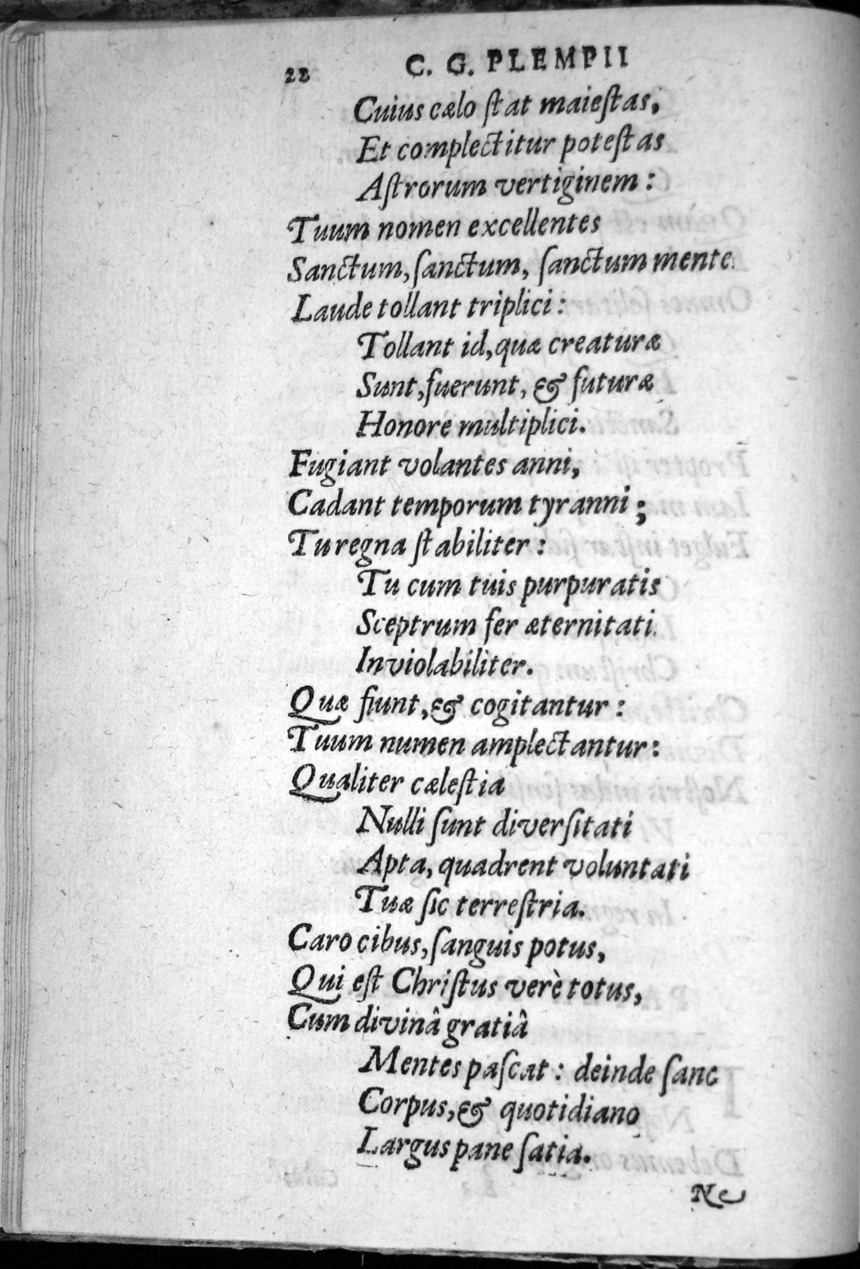 22 C. G. PLEMPII
Cuius cælo ſtat maieſtas,
Et complectitur poteſtas
Aſtrorum vertiginem :
Tuum nomen excellentes
Sanctum, ſanctum, ſanctum mente
Laude tollant triplici :
Tollant id, quæ creaturæ
Sunt, fuerunt, & futuræ
Honore multiplici.
Fugiant volantes anni,
Cadant temporum tyranni ;
Tu regna ſtabiliter :
Tu cum tuis purpuratis
Sceptrum fer æternitati
Inviolabiliter.
Quæ fiunt, & cogitantur :
Tuum numen amplectantur :
Qualiter cæleſtia
Nulli ſunt diverſitati
Apta, quadrent voluntati
Tuæ ſic terreſtria.
Caro cibus, ſanguis potus,
Qui eſt Chriſtus verè totus,
Cum divinâ gratiâ
Mentes paſcat : deinde ſano
Corpus, & quotidiano
Largus pane ſatia.
Ne